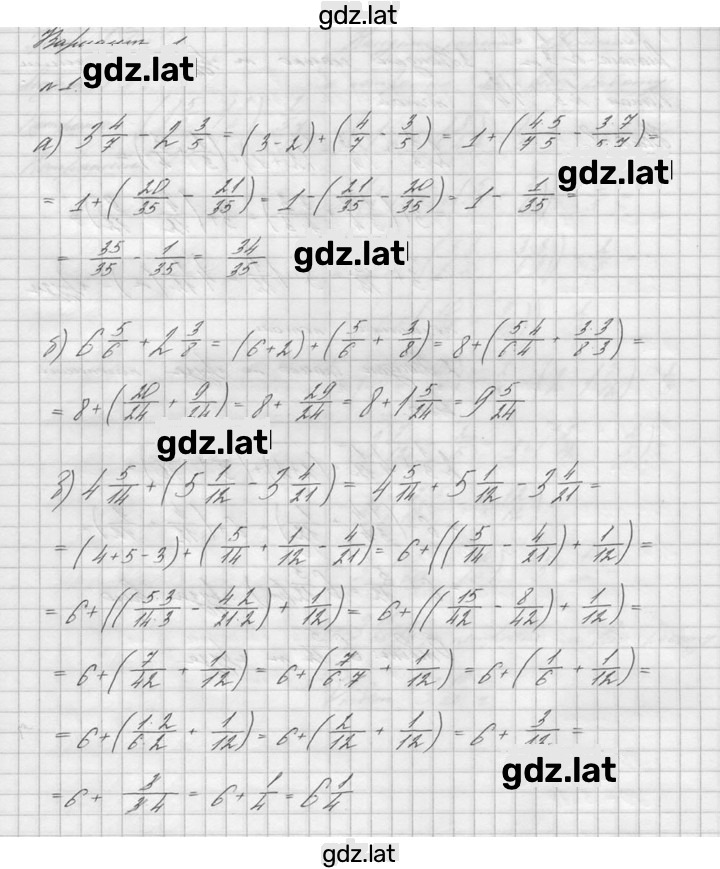 gdz.lat
Вариант 1
gdz.lat
№1.
а) 3 4/7 - 2 3/5 = (3-2) + (4/7 - 3/5) = 1 + (4·5/7·5 - 3·7/5·7) =
gdz.lat
= 1 + (20/35 - 21/35) = 1 - (21/35 - 20/35) = 1 - 1/35 =
= 35/35 - 1/35 = 34/35
gdz.lat
б) 6 5/6 + 2 3/8 = (6+2) + (5/6 + 3/8) = 8 + (5·4/6·4 + 3·3/8·3) =
= 8 + (20/24 + 9/24) = 8 + 29/24 = 8 + 1 5/24 = 9 5/24
gdz.lat
в) 4 5/14 + (5 1/12 - 3 4/21) = 4 5/14 + 5 1/12 - 3 4/21 =
= (4+5-3) + (5/14 + 1/12 - 4/21) = 6 + ((5/14 - 4/21) + 1/12) =
= 6 + ((5·3/14·3 - 4·2/21·2) + 1/12) = 6 + ((15/42 - 8/42) + 1/12) =
= 6 + (7/42 + 1/12) = 6 + (7/6·7 + 1/12) = 6 + (1/6 + 1/12) =
= 6 + (1·2/6·2 + 1/12) = 6 + (2/12 + 1/12) = 6 + 3/12 =
gdz.lat
= 6 + 3/3·4 = 6 + 1/4 = 6 1/4
gdz.lat